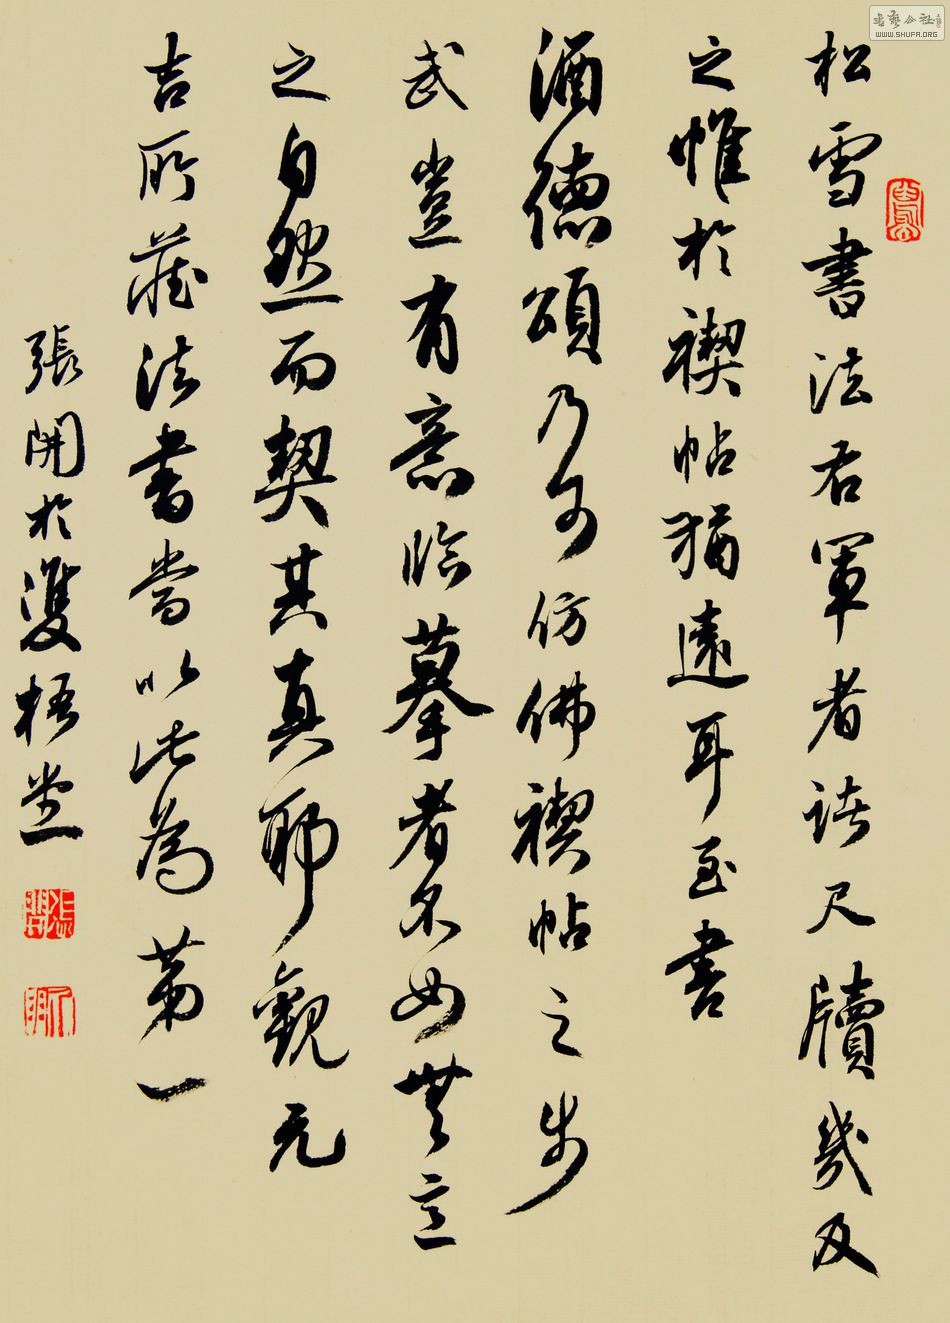 松雪書法右軍者諸尺牘幾及
之惟於禊帖猶遠耳至書
酒德頌乃可仿佛禊帖之步
武豈有意臨摹者不如無意
之自然而契其真耶觀元
吉所藏法書當以此為第一
張開於雙梧堂
書藝公社
WWW.SHUFA.ORG